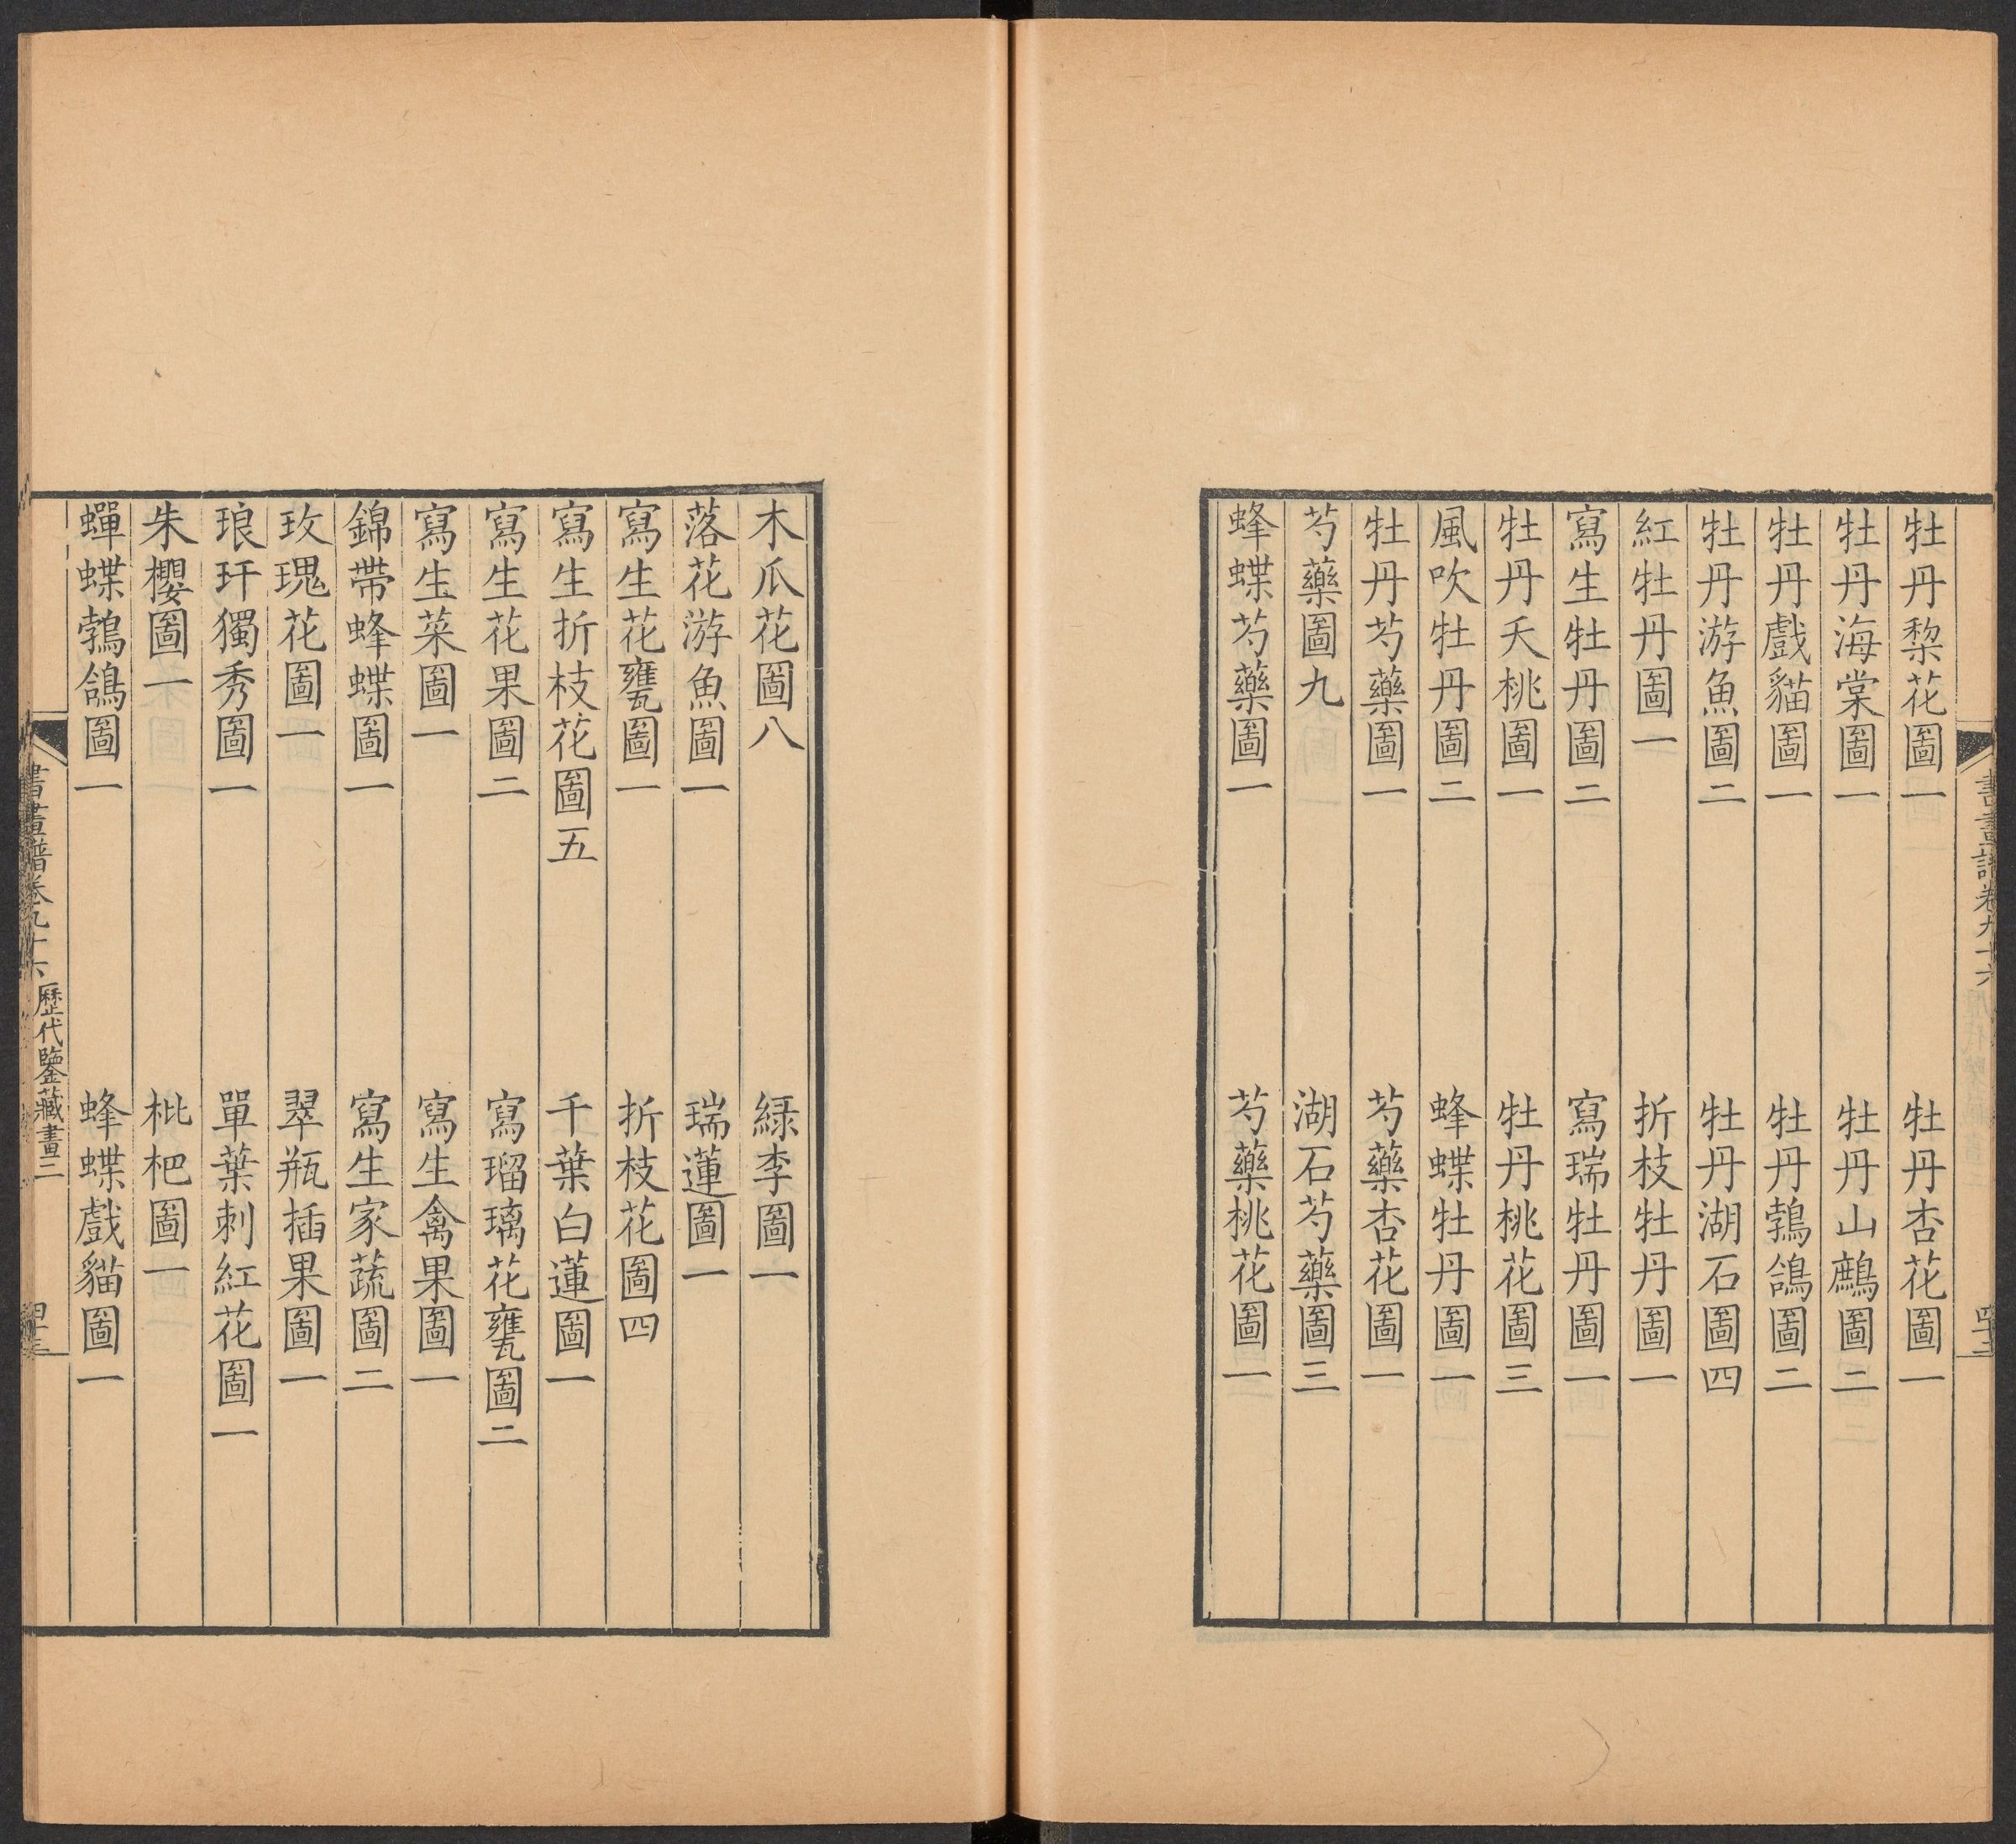 書畫譜卷九十六
牡丹棃花圖一　牡丹杏花圖一
牡丹海棠圖一　牡丹山鷓圖二
牡丹戲貓圖一　牡丹鵓鴿圖二
牡丹游魚圖二　牡丹湖石圖四
紅牡丹圖一　折枝牡丹圖一
寫生牡丹圖二　寫瑞牡丹圖一
牡丹夭桃圖一　牡丹桃花圖三
風吹牡丹圖二　蜂蝶牡丹圖一
牡丹芍藥圖一　芍藥杏花圖一
芍藥圖九　湖石芍藥圖三
蜂蝶芍藥圖一　芍藥桃花圖一
木瓜花圖八　綠李圖一
落花游魚圖一　瑞蓮圖一
寫生花甕圖一　折枝花圖四
寫生折枝花圖五　千葉白蓮圖一
寫生花果圖二　寫瑠璃花甕圖二
寫生菜圖一　寫生禽果圖一
錦帶蜂蝶圖一　寫生家蔬圖二
玫瑰花圖一　翠瓶插果圖一
琅玕獨秀圖一　單葉刺紅花圖一
朱櫻圖一　枇杷圖一
蟬蝶鵓鴿圖一　蜂蝶戲貓圖一
書畫譜卷九十六　歷代鑒藏畫二